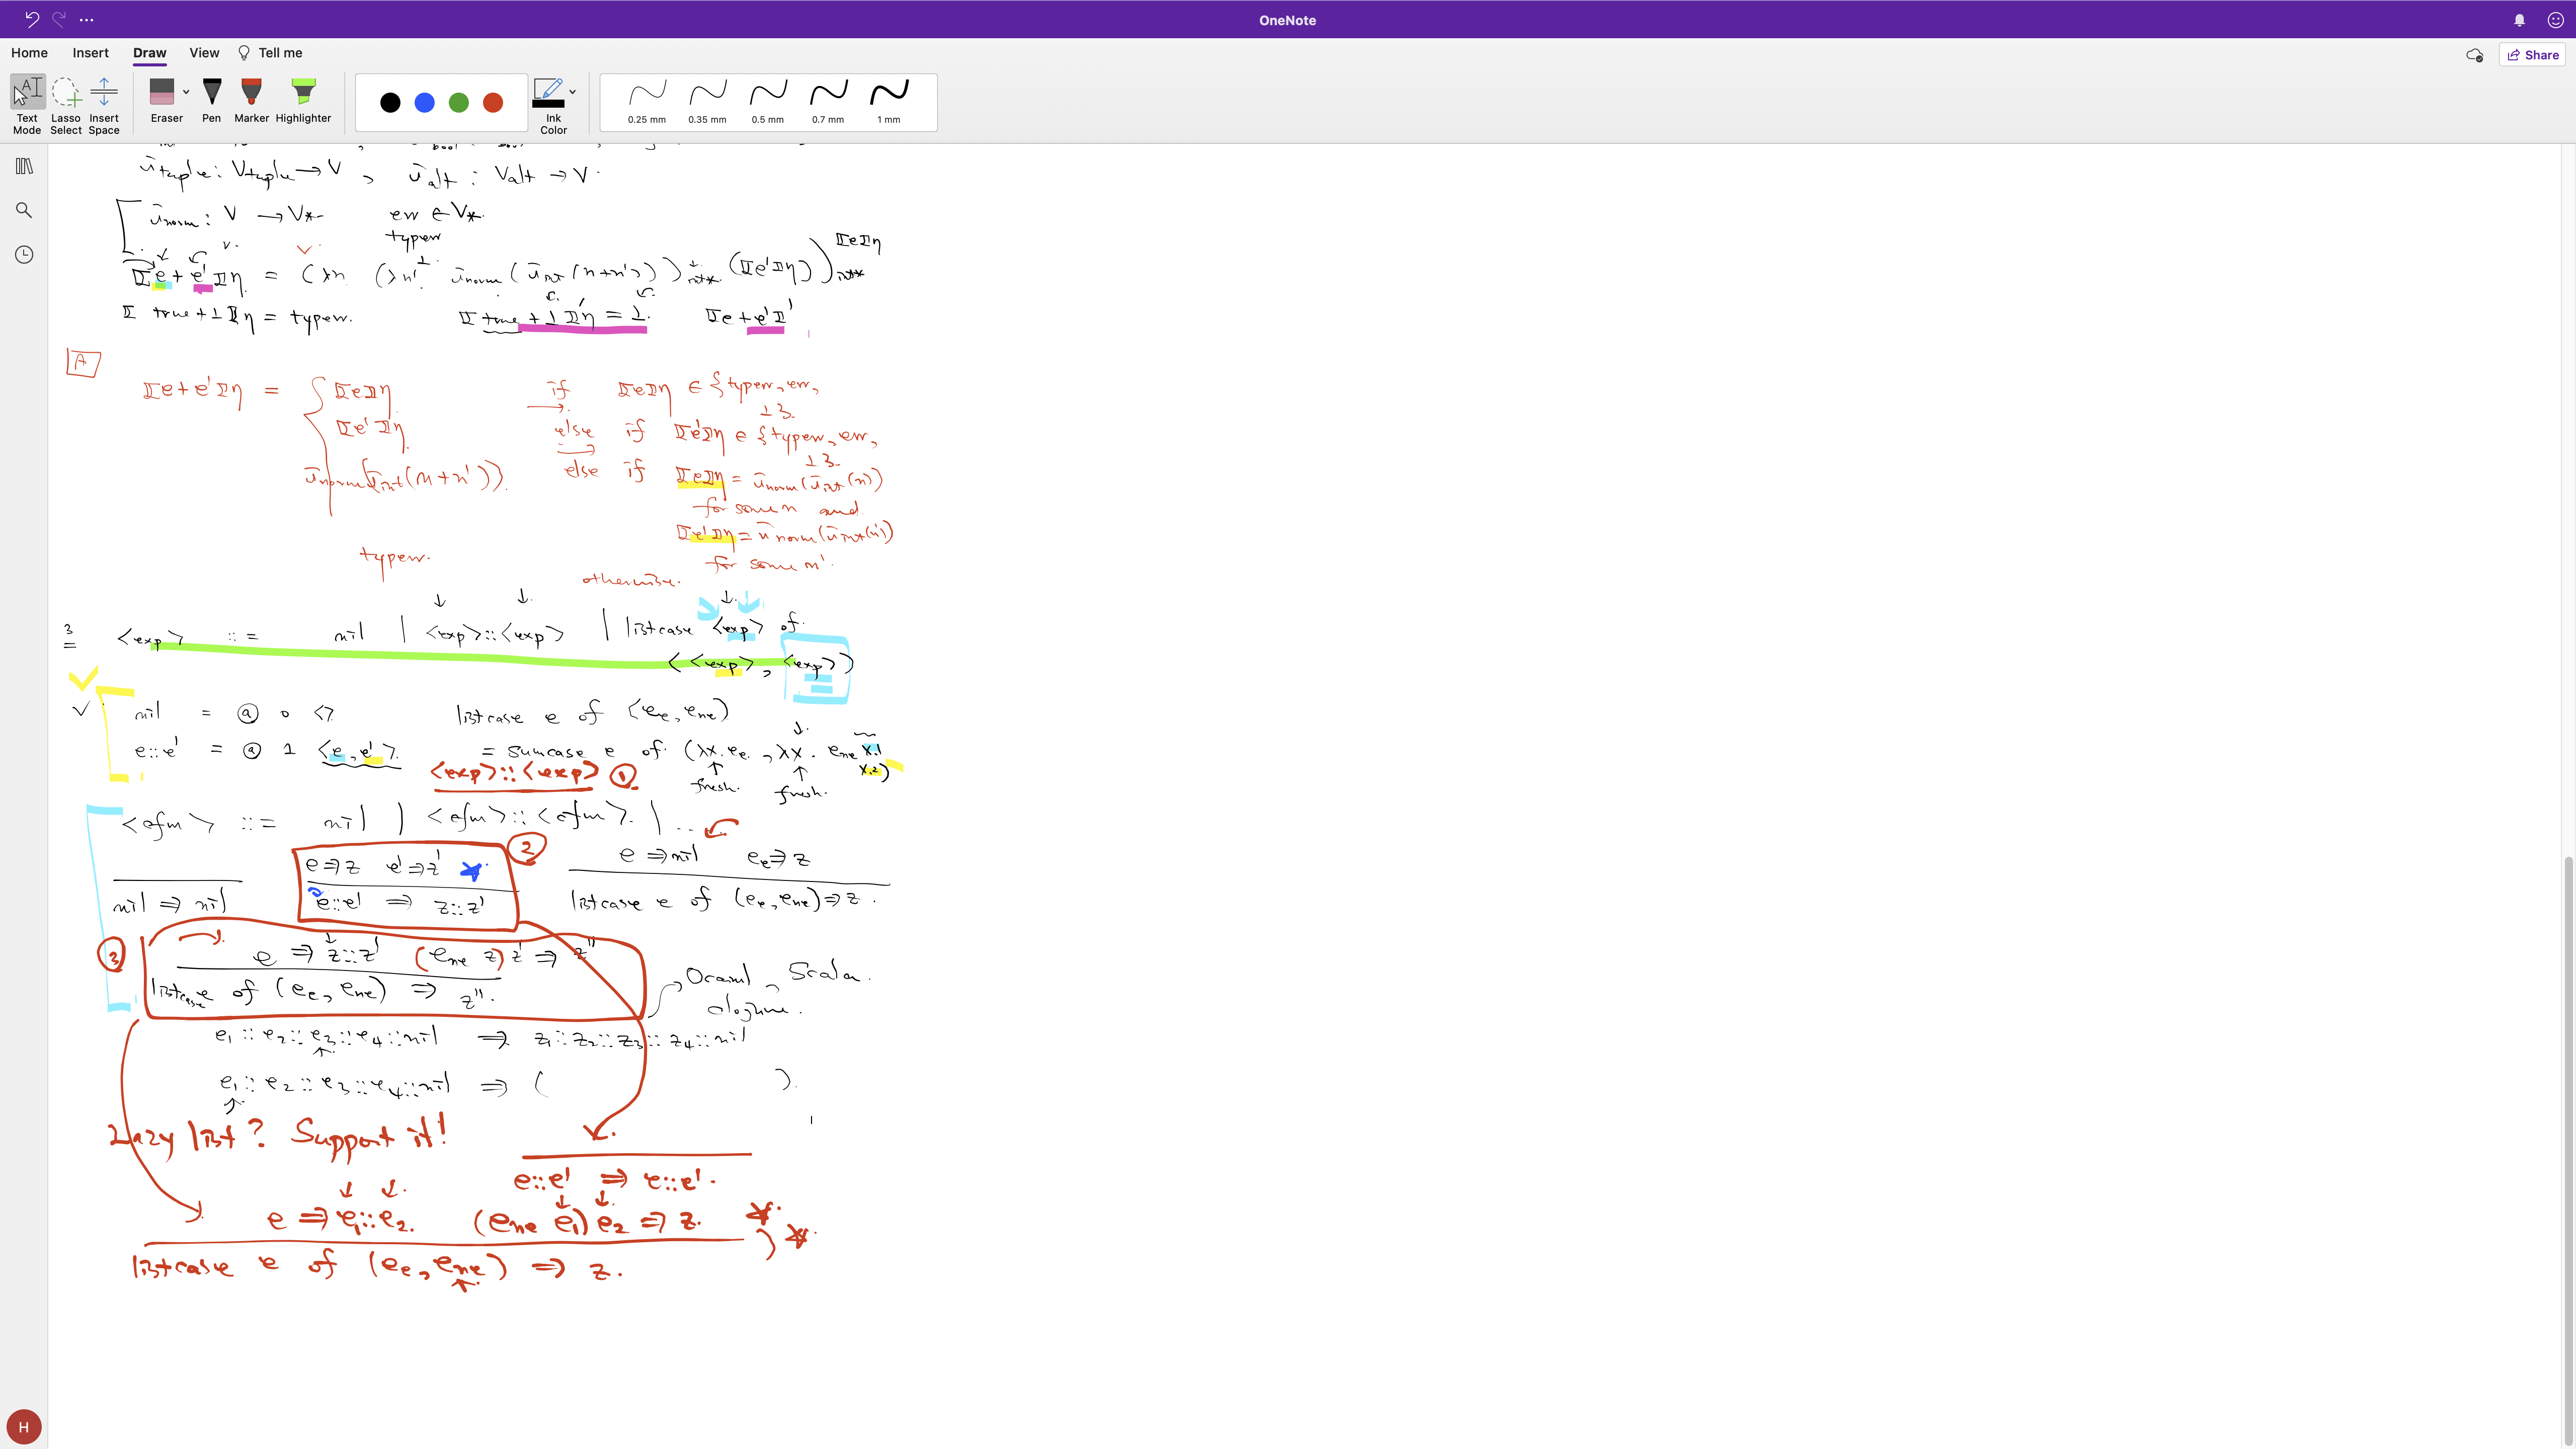 OneNote
Home Insert Draw View Tell me
Share
Text Mode
Lasso Select
Insert Space
Eraser
Pen
Marker
Highlighter
Ink Color
0.25 mm
0.35 mm
0.5 mm
0.7 mm
1 mm
ī_tuple : V_tuple → V , ī_alt : V_alt → V.
ī_norm : V → V* err ∈ V*.
typerr
⟦e + e'⟧η = (λn. (λn'. ī_norm (ī_int (n+n')))_int* (⟦e'⟧η))_int* ⟦e⟧η
⟦true + 1⟧η = typerr. ⟦true + ⊥⟧'η = ⊥. ⟦e + e'⟧'
A
⟦e + e'⟧η = { ⟦e⟧η if ⟦e⟧η ∈ {typerr, err, ⊥}.
⟦e'⟧η. else if ⟦e'⟧η ∈ {typerr, err, ⊥}.
ī_norm(ī_int(n+n')). else if ⟦e⟧η = ī_norm(ī_int(n))
for some n and
⟦e'⟧η = ī_norm(ī_int(n'))
for some n'.
typerr. otherwise.
3 <exp> ::= nil | <exp>::<exp> | listcase <exp> of
(<exp>, <exp>)
nil = @ 0 <> listcase e of (e_e, e_ne)
e::e' = @ 1 <e, e'>. = sumcase e of (λx. e_e, λx. e_ne x.1 x.2)
<exp>::<exp> ①
fresh. fresh.
<cfm> ::= nil | <cfm>::<cfm>. | ...
②
e ⇒ z e' ⇒ z'
e ⇒ nil e_e ⇒ z
nil ⇒ nil
e::e' ⇒ z::z'
listcase e of (e_e, e_ne) ⇒ z.
③
e ⇒ z::z' (e_ne z) z' ⇒ z''
listcase e of (e_e, e_ne) ⇒ z''.
Ocaml, Scala.
e1::e2::e3::e4::nil ⇒ z1::z2::z3::z4::nil
e1::e2::e3::e4::nil ⇒ ( ).
Lazy list? Support it!
e::e' ⇒ e::e'.
e ⇒ e1::e2. (e_ne e1) e2 ⇒ z.
listcase e of (e_e, e_ne) ⇒ z.
H